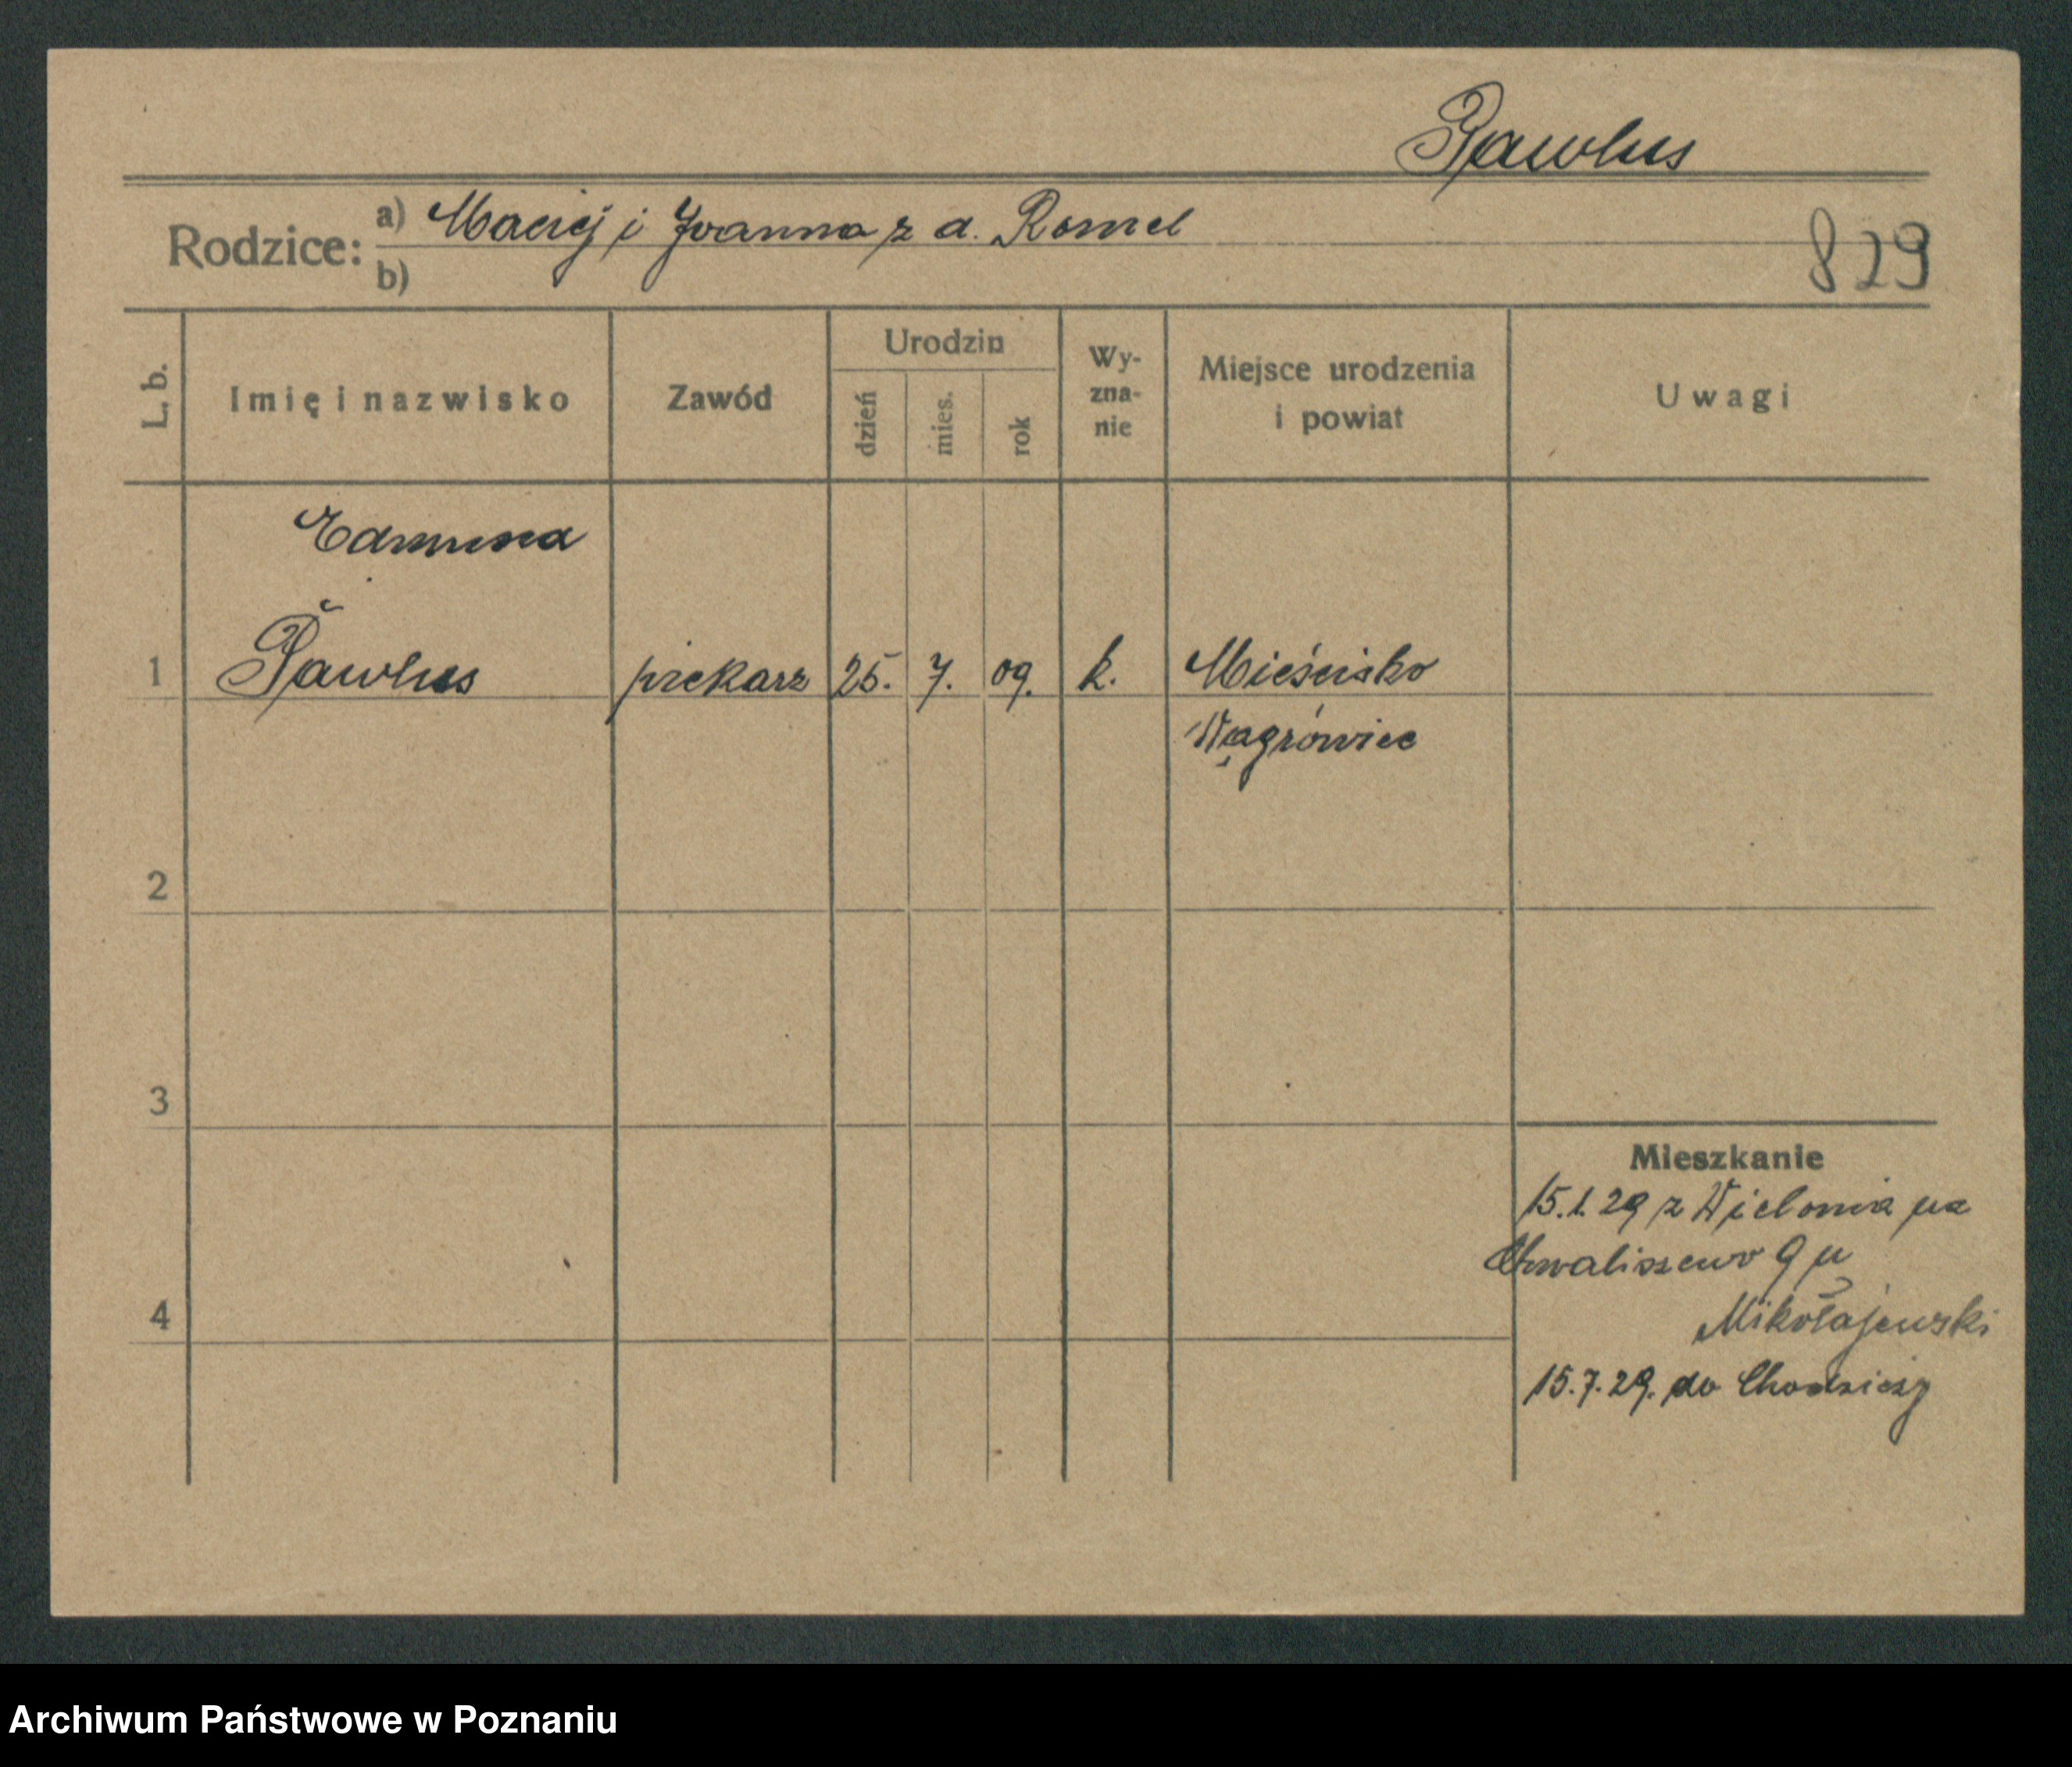 Pawlus
Rodzice: a) Maciej i Joanna z d. Romel
b)
829
L. b.
Imię i nazwisko
Zawód
Urodzin
dzień
mies.
rok
Wy-
zna-
nie
Miejsce urodzenia
i powiat
Uwagi
Edmund
1 Pawlus piekarz 25. 7. 09. k. Mieścisko
Wągrówiec
2
3
Mieszkanie
15.1.29 z Wielonia na
Chwaliszewo 9 u
Mikołajewski
4
15.7.29. do Chodzieży
Archiwum Państwowe w Poznaniu